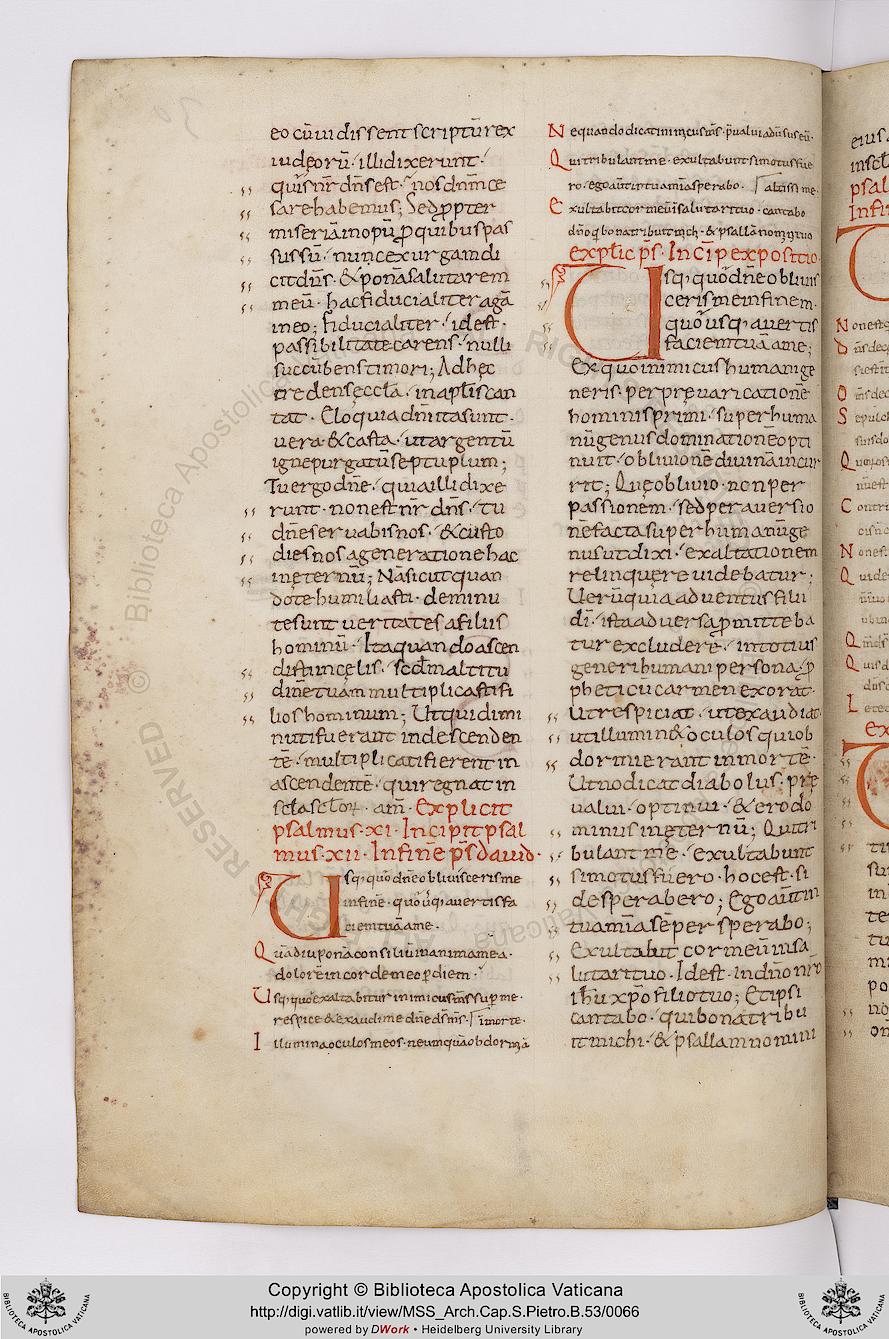 eo cū uidissent scriptū rex
iudęorū · illi dixerunt ·
quis nr̄ dn̄s est · nos dn̄m ce
sare habemus ; Sed ꝓpter
miseriā inopū ꝓ quibus pas
sus sū · nunc exurgam di
cit dn̄s · & ponā salutarem
meū · hac fiducialiter agā
in eo ; fiducialiter · id est ·
passibilitate carens · nulli
succūbens timori ; Ad hęc
credens ęccl̄a · in apl̄is can
tat · Eloquia dn̄i ita sunt ·
uera & casta · ut argentū
igne purgatū septuplum ;
Tu ergo dn̄e · quia illi dixe
runt · non est nr̄ dn̄s · tu
dn̄e seruabis nos · & custo
dies nos a generatione hac
in ęternū ; Nā sicut quan
do te humiliasti · deminu
te sunt ueritates a filiis
hominū · Ita quando ascen
disti in cęlis · scd̄m altitu
dinē tuam multiplicasti fi
lios hominum ; Ut qui dimi
nuti fuerant in descenden
tē · multiplicati fierent in
ascendentē · qui regnat in
sc̄la sc̄lor̄ · am̄ · Explicit
psalmus · xi · Incipit psal
mus · xii · In finē ps̄ dauid ·
Usq; quo dn̄e obliuisceris me
in finē · quo usq; auertis fa
ciem tuā a me ·
Quādiu ponā consiliū in anima mea ·
dolorē in corde meo ꝑ diem ·
Usq; quo exaltabitur inimicus ms̄ sup̄ me ·
respice & exaudi me dn̄e ds̄ ms̄ · ī morte ·
Illumina oculos meos · ne umquā obdormiā
Nequando dicat inimicus ms̄ · p̄ualui aduersus eū ·
Qui tribulant me · exultabunt si motus fue
ro · ego aūt in tua mīa sperabo · altissime ·
Exultabit cor meū ī salutari tuo · cantabo
dn̄o q̇ bona tribuit mich · & psallā nomini tuo
explic̄ ps̄ · Incip̄ expositio ·
Usq; quo dn̄e obliuis
ceris me in finem ·
quo usq; auertis
faciem tuā a me ;
Ex quo inimicus humani ge
neris · per preuaricationē
hominis primi · super huma
nū genus dominationē opti
nuit · obliuionē diuinā incur
rit ; Quę obliuio · non per
passionem · sed per auersio
nē facta super humanū ge
nus ut dixi · exaltationem
relinquere uidebatur ;
Uerū quia aduentus filii
dī · ista aduersa ꝑmitteba
tur excluderē · in totius
generi humani persona · ꝓ
pheticū carmen exorat ·
Ut respiciat · ut exaudiat ·
ut illumin& oculos qui ob
dormierant in mortē ·
Ut nō dicat diabolus · prę
ualui · optinui · & ero do
minus in ęternū ; Qui tri
bulant me · exultabunt
si motus fuero · hoc est · si
desperabero ; Ego aūt in
tua mīa sēper sperabo ;
Exultabit cor meū in sa
lutari tuo · Id est · in dn̄o nr̄o
ih̄u xp̄o filio tuo ; Et ipsi
cantabo · qui bona tribu
it michi · & psallam nomini
Copyright © Biblioteca Apostolica Vaticana
http://digi.vatlib.it/view/MSS_Arch.Cap.S.Pietro.B.53/0066
powered by DWork • Heidelberg University Library